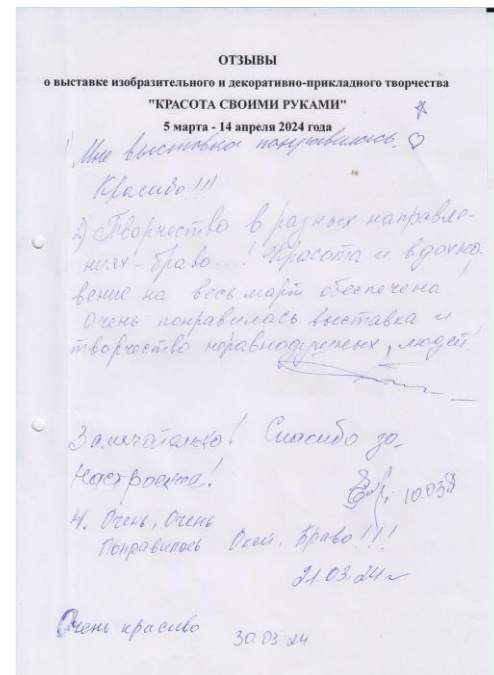 ОТЗЫВЫ
о выставке изобразительного и декоративно-прикладного творчества
"КРАСОТА СВОИМИ РУКАМИ"
5 марта - 14 апреля 2024 года
1) Мне выставка понравилась.
Красиво!!!
2) Творчество в разных направле-
ниях - браво...! Красота и вдохно-
вение на весь март обеспечена!
Очень понравилась выставка и
творчество неравнодушных людей!
Замечательно! Спасибо за
настроение!
10.03
4. Очень, Очень
Понравилось Браво!!!
21.03.24
Очень красиво 30.03.24